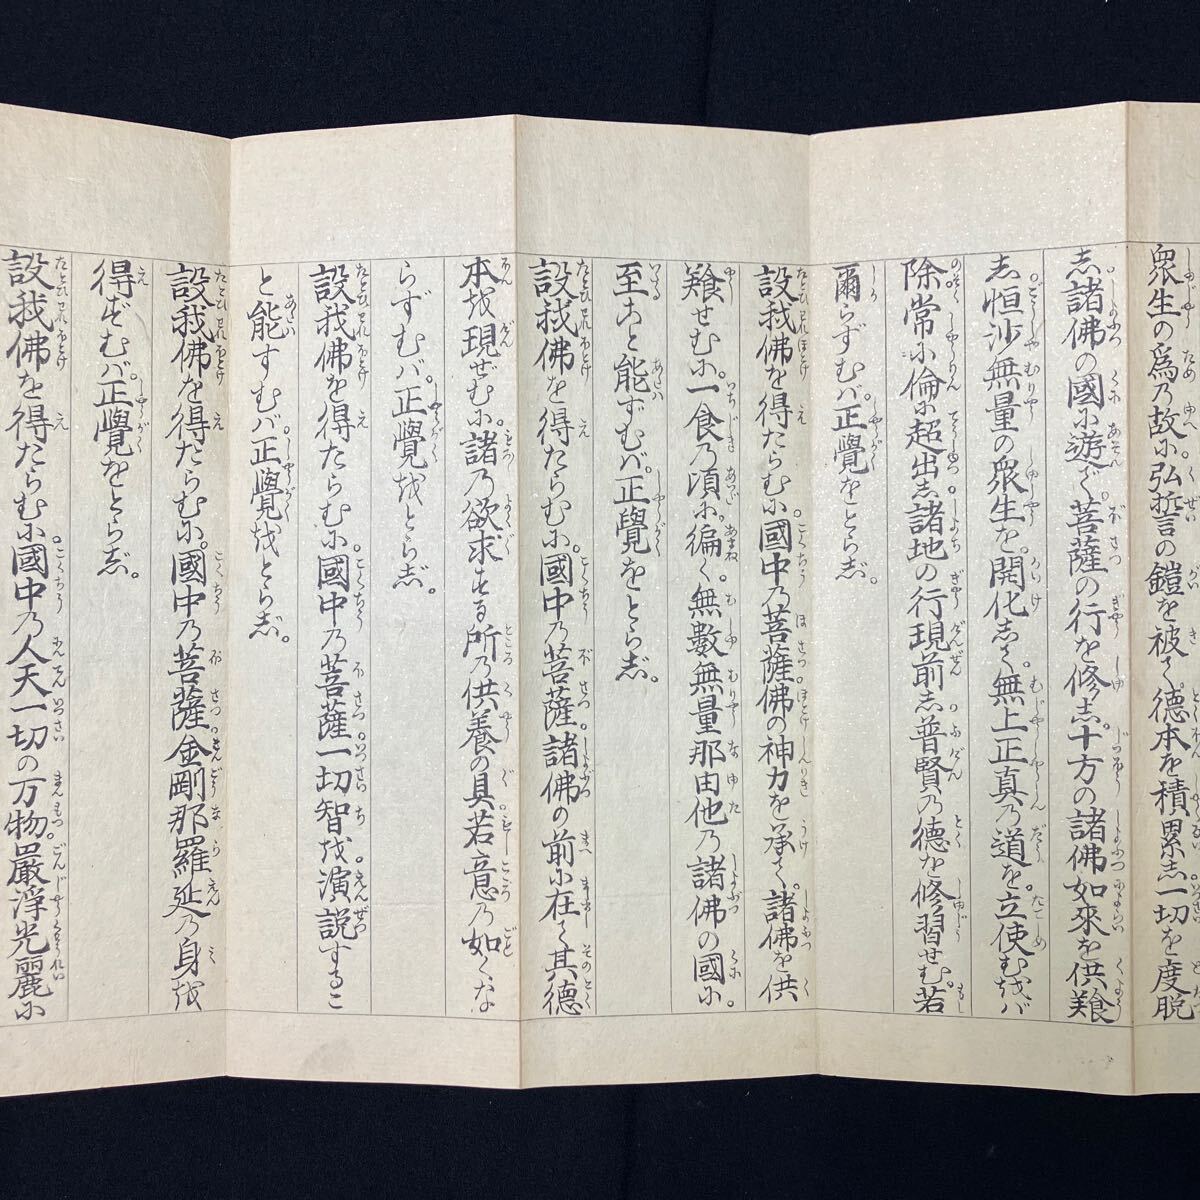 衆生の爲乃故に。弘誓の鎧を被て。德本を積累し。一切を度脱
し。諸佛の國に遊で。菩薩の行を修し。十方の諸佛如來を供養
し。恒沙無量の衆生を。開化して。無上正真乃道を。立使むをバ
除。常に倫に超出し。諸地の行現前し。普賢乃德を修習せむ。若
爾らずむバ。正覺をとらじ。
設我佛を得たらむに。國中乃菩薩。佛の神力を承て。諸佛を供
養せむに。一食乃頃に。徧く無數無量那由他乃諸佛の國に。
至こと能ずむバ。正覺をとらじ。
設我佛を得たらむに。國中乃菩薩。諸佛の前に在て。其德
本を現ぜむに。諸乃欲求する所乃供養の具。若意乃如くな
らずむバ。正覺をとらじ。
設我佛を得たらむに。國中乃菩薩。一切智を。演説するこ
と能ずむバ。正覺をとらじ。
設我佛を得たらむに。國中乃菩薩。金剛那羅延乃身を
得ずむバ。正覺をとらじ。
設我佛を得たらむに。國中乃人天一切の万物。嚴浮光麗に